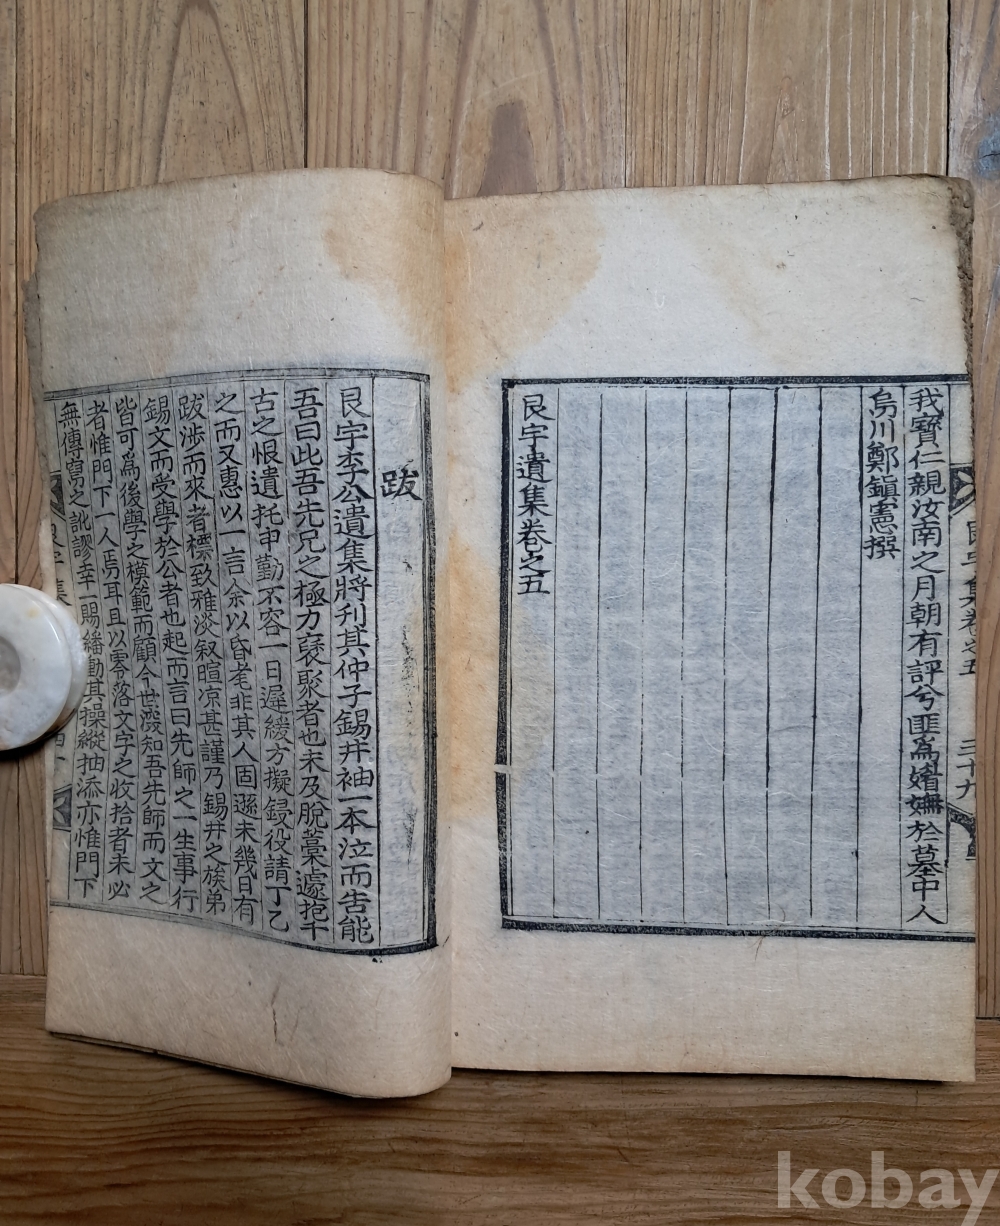 我寶仁親汝南之月朝有評兮匪爲媎嫵於墓中人
烏川鄭鎭憲撰
艮宇遺集卷之五
艮宇集卷之五 三十九
跋
艮宇李公遺集將刋其仲子錫井袖一本泣而告能
吾曰此吾先兄之極力裒聚者也未及脫藁遽抱千
古之恨遺托申勤不容一日遲緩方擬鋟役請丁乙
之而又惠以一言余以昏耄非其人固遜未幾日有
跋涉而來者標致雅淡叙暄凉甚謹乃錫井之族弟
錫文而受學於公者也起而言曰先師之一生事行
皆可爲後學之模範而顧今世澱知吾先師而文之
者惟門下一人焉耳且以零落文字之收拾者未必
無傳寫之訛謬幸一賜繙勘其操縱抽添亦惟門下
kobay